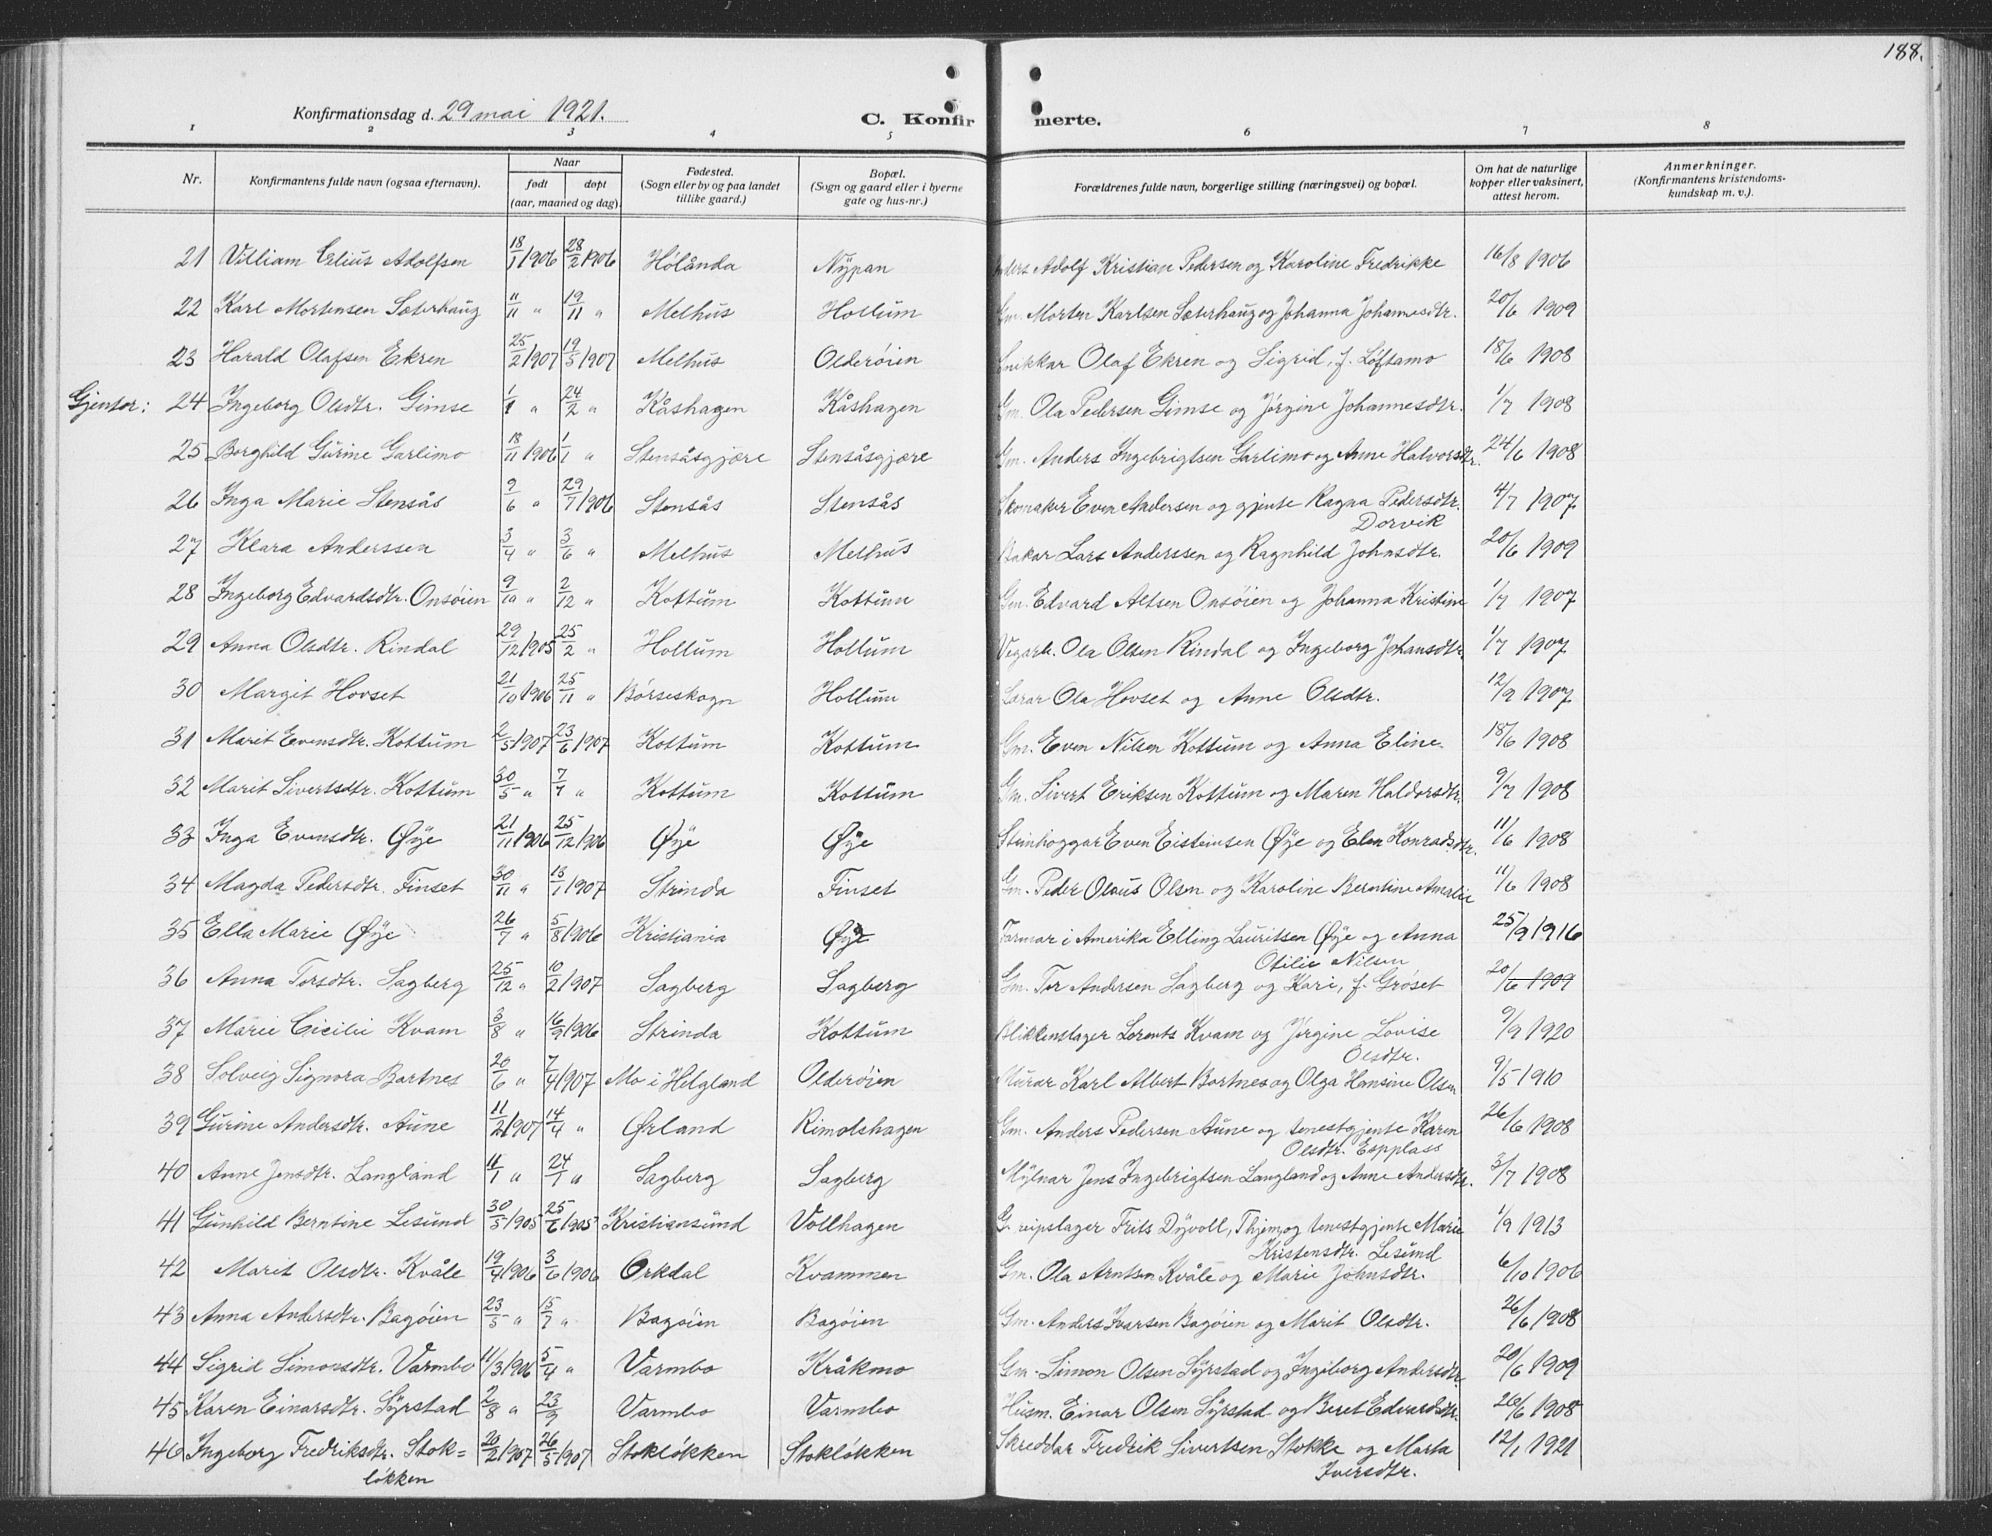 188.
Konfirmationsdag d. 29 mai 1921.
C. Konfirmerte.
1 2 3 4 5 6 7 8
Nr. Konfirmantens fulde navn (ogsaa efternavn). Naar født døpt (aar, maaned og dag). Fødested. (Sogn eller by og paa landet tillike gaard.) Bopæl. (Sogn og gaard eller i byerne gate og hus-nr.) Forældrenes fulde navn, borgerlige stilling (næringsvei) og bopæl. Om hat de naturlige kopper eller vaksinert, attest herom. Anmerkninger. (Konfirmantens kristendomskundskap m. v.).
21 Villiam Elius Adolfsen 18/1 1906 28/2 1906 Hølånda Nypan Anders Adolf Kristian Pedersen og Karoline Fredrikke 16/8 1906
22 Karl Mortensen Sæterhaug 11/11 " 19/11 " Melhus Hollum Gm. Morten Karlsen Sæterhaug og Johanna Johannesdtr. 20/6 1909
23 Harald Olafsen Ekren 25/2 1907 19/5 1907 Melhus Olderøien Snikkar Olaf Ekren og Sigrid, f. Løftamo 18/6 1908
Gjentor: 24 Ingeborg Olsdtr. Gimse 1/1 " 24/2 " Kåshagen Kåshagen Gm. Ola Pedersen Gimse og Jørgine Johannesdtr. 1/7 1908
25 Borghild Gurine Garlimo 18/11 1906 1/1 " Stensåsgjære Stensåsgjære Gm. Anders Ingebrigtsen Garlimo og Anne Halvorsdtr. 24/6 1908
26 Inga Marie Stensås 9/6 " 29/7 1906 Stensås Stensås Skomaker Even Andersen og gjente Ragna Pedersdtr. 4/7 1907
Dorvik
27 Klara Anderssen 3/4 " 3/6 " Melhus Melhus Bakar Lars Anderssen og Ragnhild Johnsdtr. 20/6 1909
28 Ingeborg Edvardsdtr. Onsøien 9/10 " 2/12 " Kottum Kottum Gm. Edvard Altsen Onsøien og Johanna Kristine 1/7 1907
29 Anna Olsdtr. Rindal 29/12 1905 25/2 " Hollum Hollum Vegarb. Ola Olsen Rindal og Ingeborg Johansdtr. 1/7 1907
30 Margit Hovset 21/10 1906 25/11 " Børseskogn Hollum Lærar Ola Hovset og Anne Olsdtr. 12/9 1907
31 Marit Evensdtr. Kottum 2/5 1907 23/6 1907 Kottum Kottum Gm. Even Nilsen Kottum og Anna Eline 18/6 1908
32 Marit Sivertsdtr. Kottum 30/5 " 7/7 " Kottum Kottum Gm. Sivert Eriksen Kottum og Maren Haldorsdtr. 9/7 1908
33 Inga Evensdtr. Øye 21/11 1906 25/12 1906 Øye Øye Steinhoggar Even Eisteinsen Øye og Elen Konradsdtr. 11/6 1908
34 Magda Pedersdtr. Finset 30/11 " 13/1 1907 Strinda Finset Gm. Peder Olaus Olsen og Karoline Berntine Amalie 11/6 1908
35 Ella Marie Øye 26/7 " 5/8 1906 Kristiania Øye Farmar i Amerika Elling Lauritsen Øye og Anna 25/9 1916
Otilie Nilsen
36 Anna Torsdtr. Sagberg 25/12 " 10/2 1907 Sagberg Sagberg Gm. Tor Andersen Sagberg og Kari, f. Grøset 20/6 1909
37 Marie Cicilie Kvam 3/8 " 16/9 1906 Strinda Kottum Blikkenslager Lorents Kvam og Jørgine Lovise 9/9 1920
Olsdtr.
38 Solveig Signora Bartnes 20/6 " 7/4 1907 Mo i Helgland Olderøien Murar Karl Albert Bortnes og Olga Hansine Olsen 9/5 1910
39 Gurine Andersdtr. Aune 11/2 1907 14/4 " Ørland Rimolshagen Gm. Anders Pedersen Aune og tenestgjente Karen 26/6 1908
Olsdtr. Espplass
40 Anne Jensdtr. Langland 11/1 " 24/1 " Sagberg Sagberg Mylnar Jens Ingebrigtsen Langland og Anne Andersdtr. 3/7 1908
41 Gunhild Berntine Lesund 30/5 1905 25/6 1905 Kristiansund Vollhagen G. reipslager Frits Dyvoll, Thjem og tenestgjente Marie 1/9 1913
Kristensdtr. Lesund
42 Marit Olsdtr. Kvåle 19/4 1906 3/6 1906 Orkdal Kvammen Gm. Ola Arntsen Kvåle og Marie Johnsdtr. 6/10 1906
43 Anna Andersdtr. Bagøien 23/5 " 15/7 " Bagøien Bagøien Gm. Anders Ivarsen Bagøien og Marit Olsdtr. 26/6 1908
44 Sigrid Simonsdtr. Varmbo 11/3 1906 5/4 " Varmbo Kråkmo Gm. Simon Olsen Syrstad og Ingeborg Andersdtr. 20/6 1909
45 Karen Einarsdtr. Syrstad 2/8 " 23/9 Varmbo Varmbo Husm. Einar Olsen Syrstad og Beret Edvardsdtr. 26/6 1908
46 Ingeborg Fredriksdtr. Stok= 20/2 1907 26/5 1907 Stokløkken Stokløkken Skreddar Fredrik Sivertsen Stokke og Marta 12/1 1921
løkken Iversdtr.